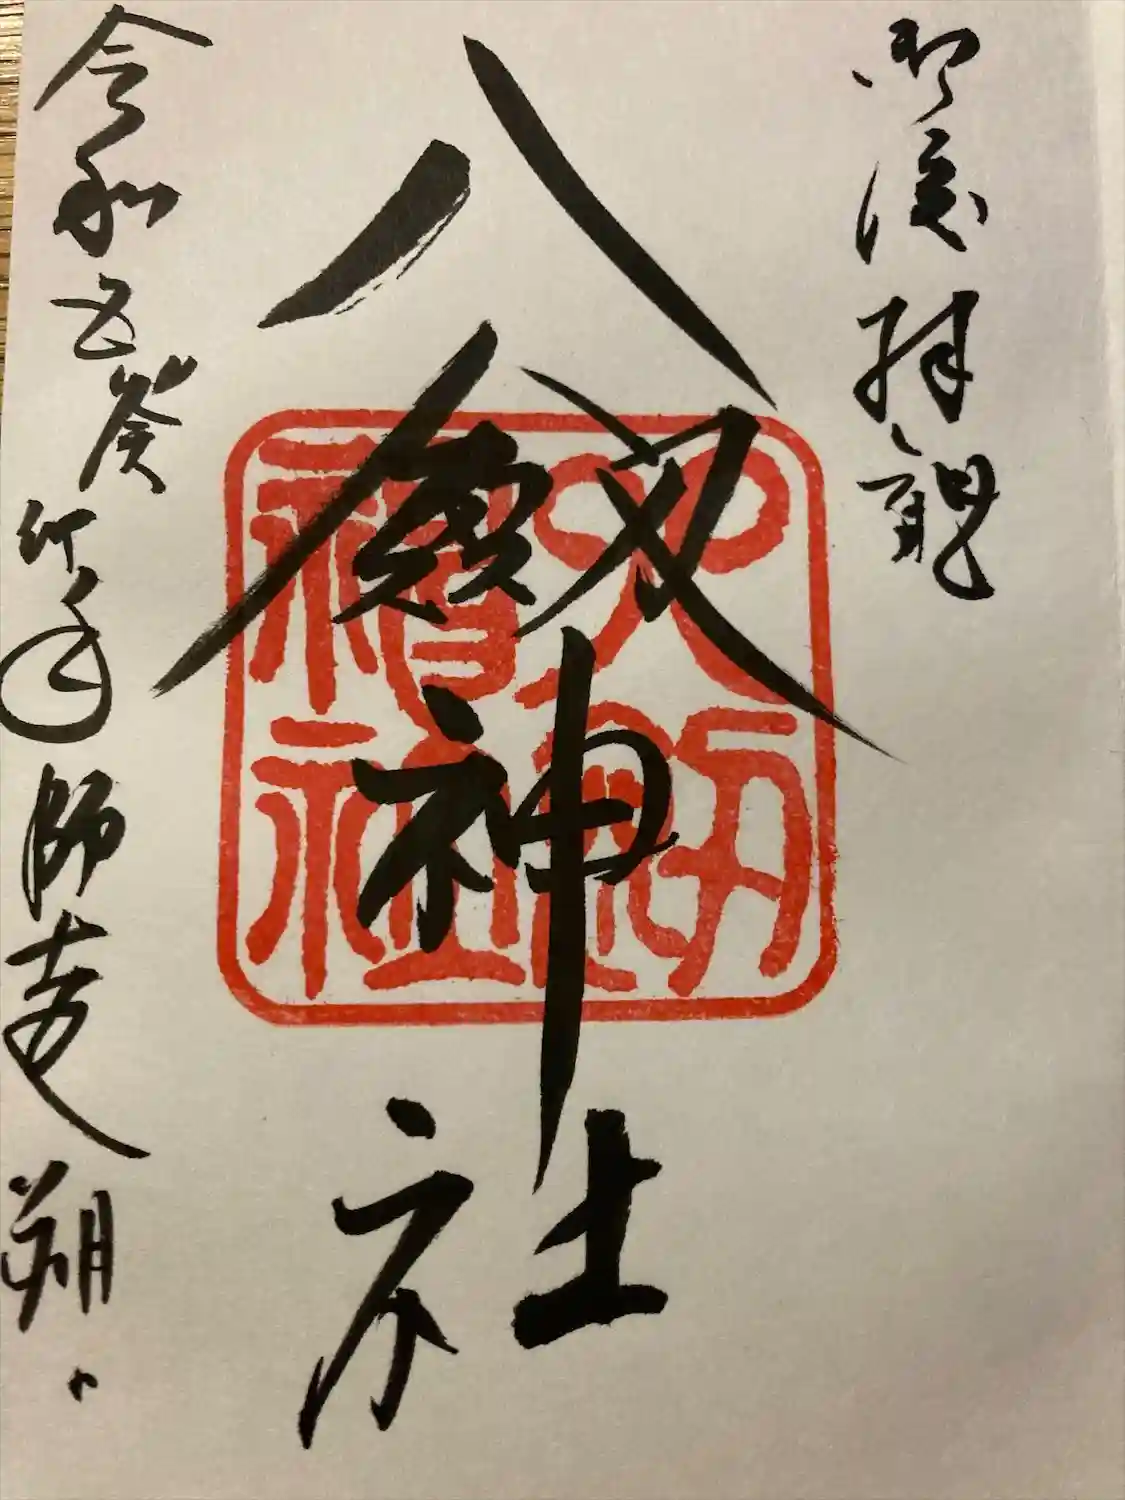 御渡拝観
八劔神社
令和五癸卯年師走朔
八釼神社